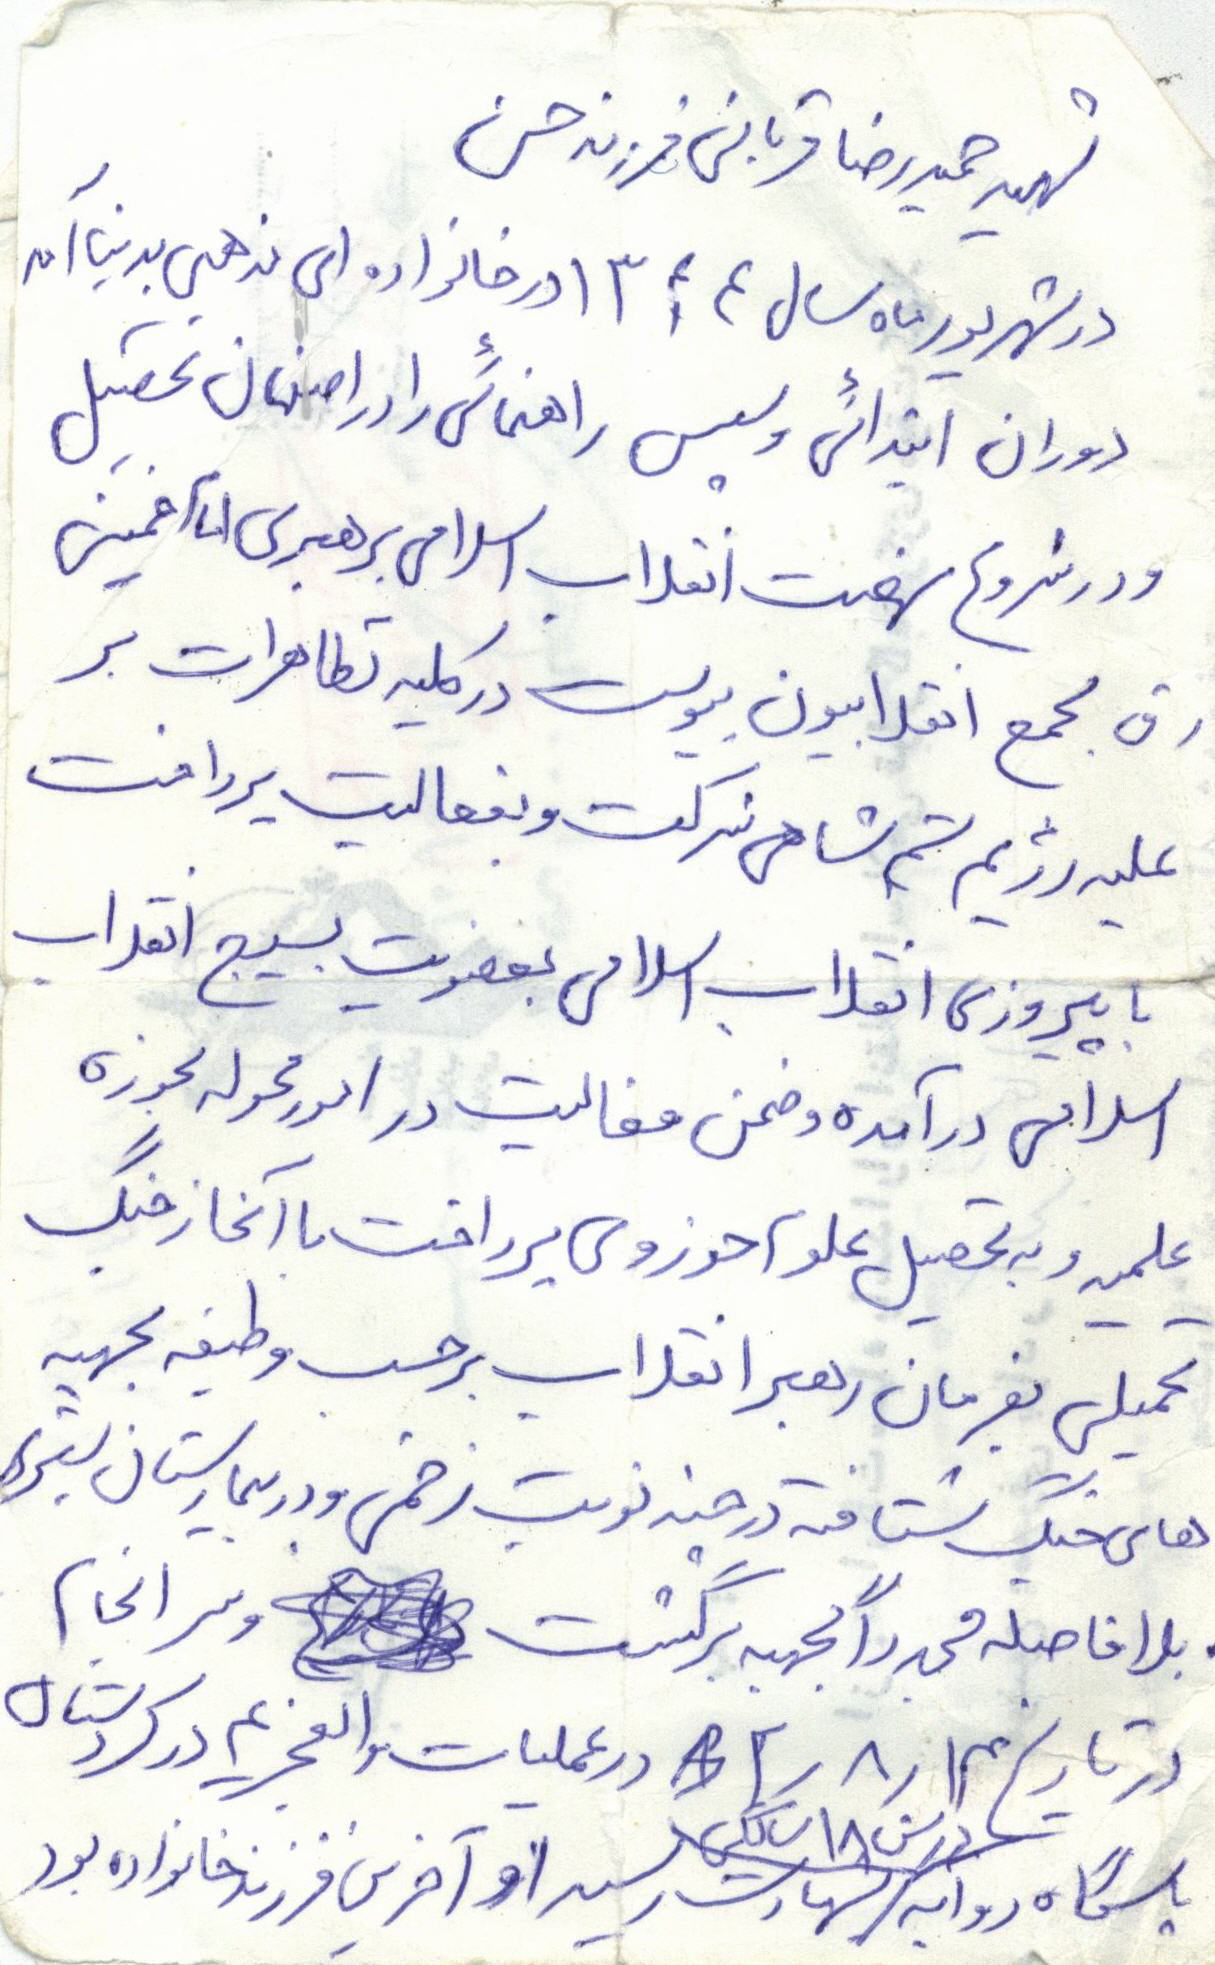 شهید حمیدرضا قربانی فرزند حسن
در شهریور ماه سال ۱۳۴۴ در خانواده ای مذهبی بدنیا آمد
دوران ابتدائی و سپس راهنمائی را در اصفهان تحصیل
و در شروع نهضت انقلاب اسلامی برهبری امام خمینی
بجمع انقلابیون پیوست در کلیه تظاهرات بر
علیه رژیم ستم شاهی شرکت و بفعالیت پرداخت
با پیروزی انقلاب اسلامی بعضویت بسیج انقلاب
اسلامی درآمده و ضمن فعالیت در امور محوله بحوزه
علمیه و به تحصیل علوم حوزوی پرداخت با آغاز جنگ
تحمیلی بفرمان رهبر انقلاب برحسب وظیفه بجبهه
های جنگ شتافته در چند نوبت زخمی و در بیمارستان بستری
بلافاصله مجدداً بجبهه برگشت و سرانجام
در تاریخ ۱۴ر۸ر در عملیات والفجر ۴ در کردستان
در سن ۱۸ سالگی
پاسگاه دوابه شهادت رسید او آخرین فرزند خانواده بود